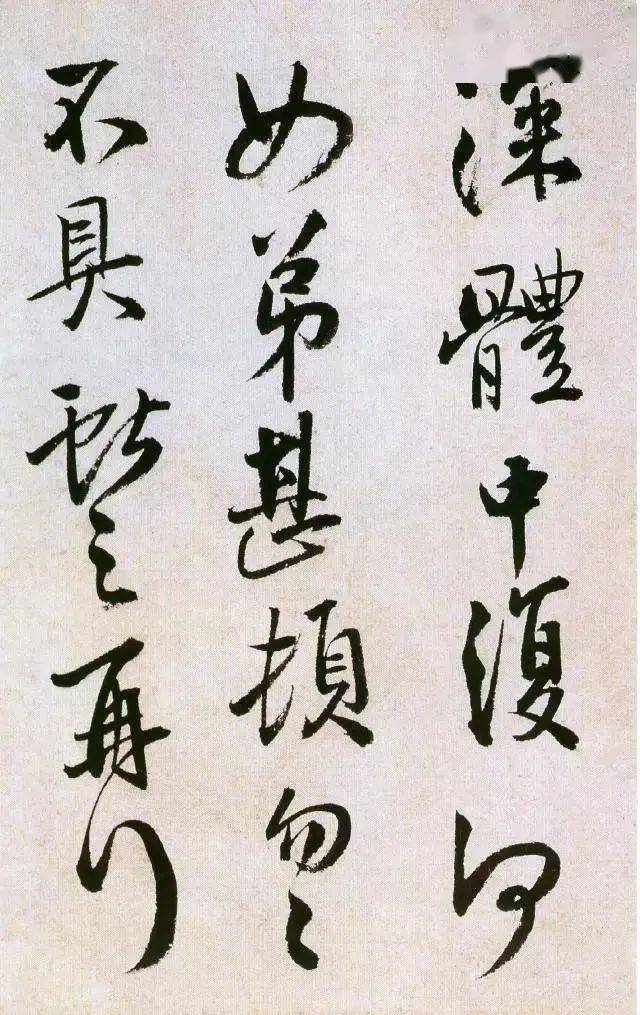 深體中復何
如弟甚頓匆匆
不具獻之再拜